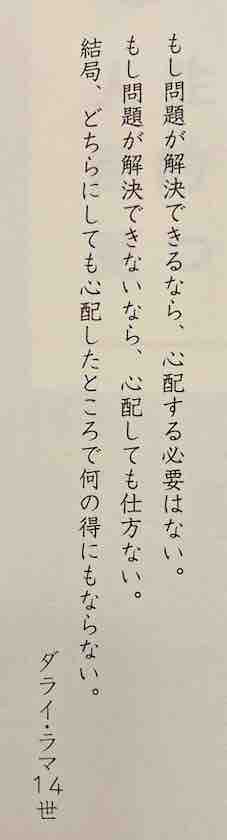 もし問題が解決できるなら、心配する必要はない。
もし問題が解決できないなら、心配しても仕方ない。
結局、どちらにしても心配したところで何の得にもならない。
ダライ・ラマ14世